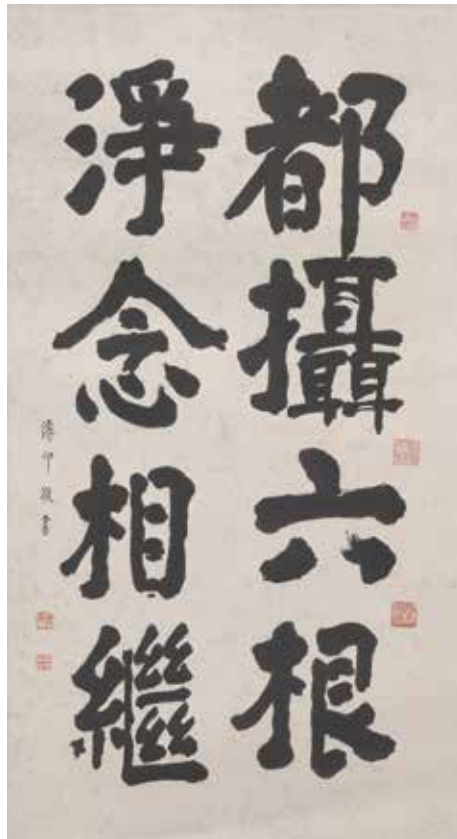 都攝六根
淨念相繼